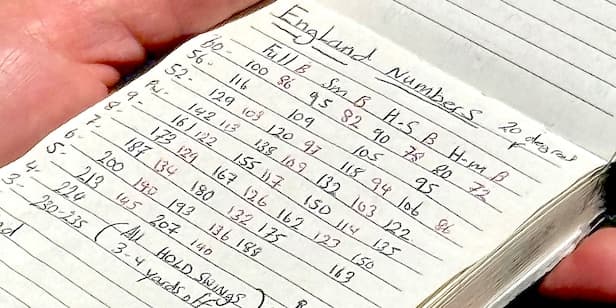 England Numbers 20 degrees
Full B Sm B H-S B H-m B
60- 100 86 95 82 90 78 80 72
56- 116 109 105 95
52- 129 103 120 97 118 94 106 86
Pw- 142 113 138 109 132 103 122
9- 161 122 155 117 150 114 135
8- 173 129 167 126 162 123 150
7- 187 134 180 132 175 163
6- 200 140 193 136 188
5- 213 145 207 140
4- 224
3- 230-235 (All HOLD SWINGS
3-4 yards off)